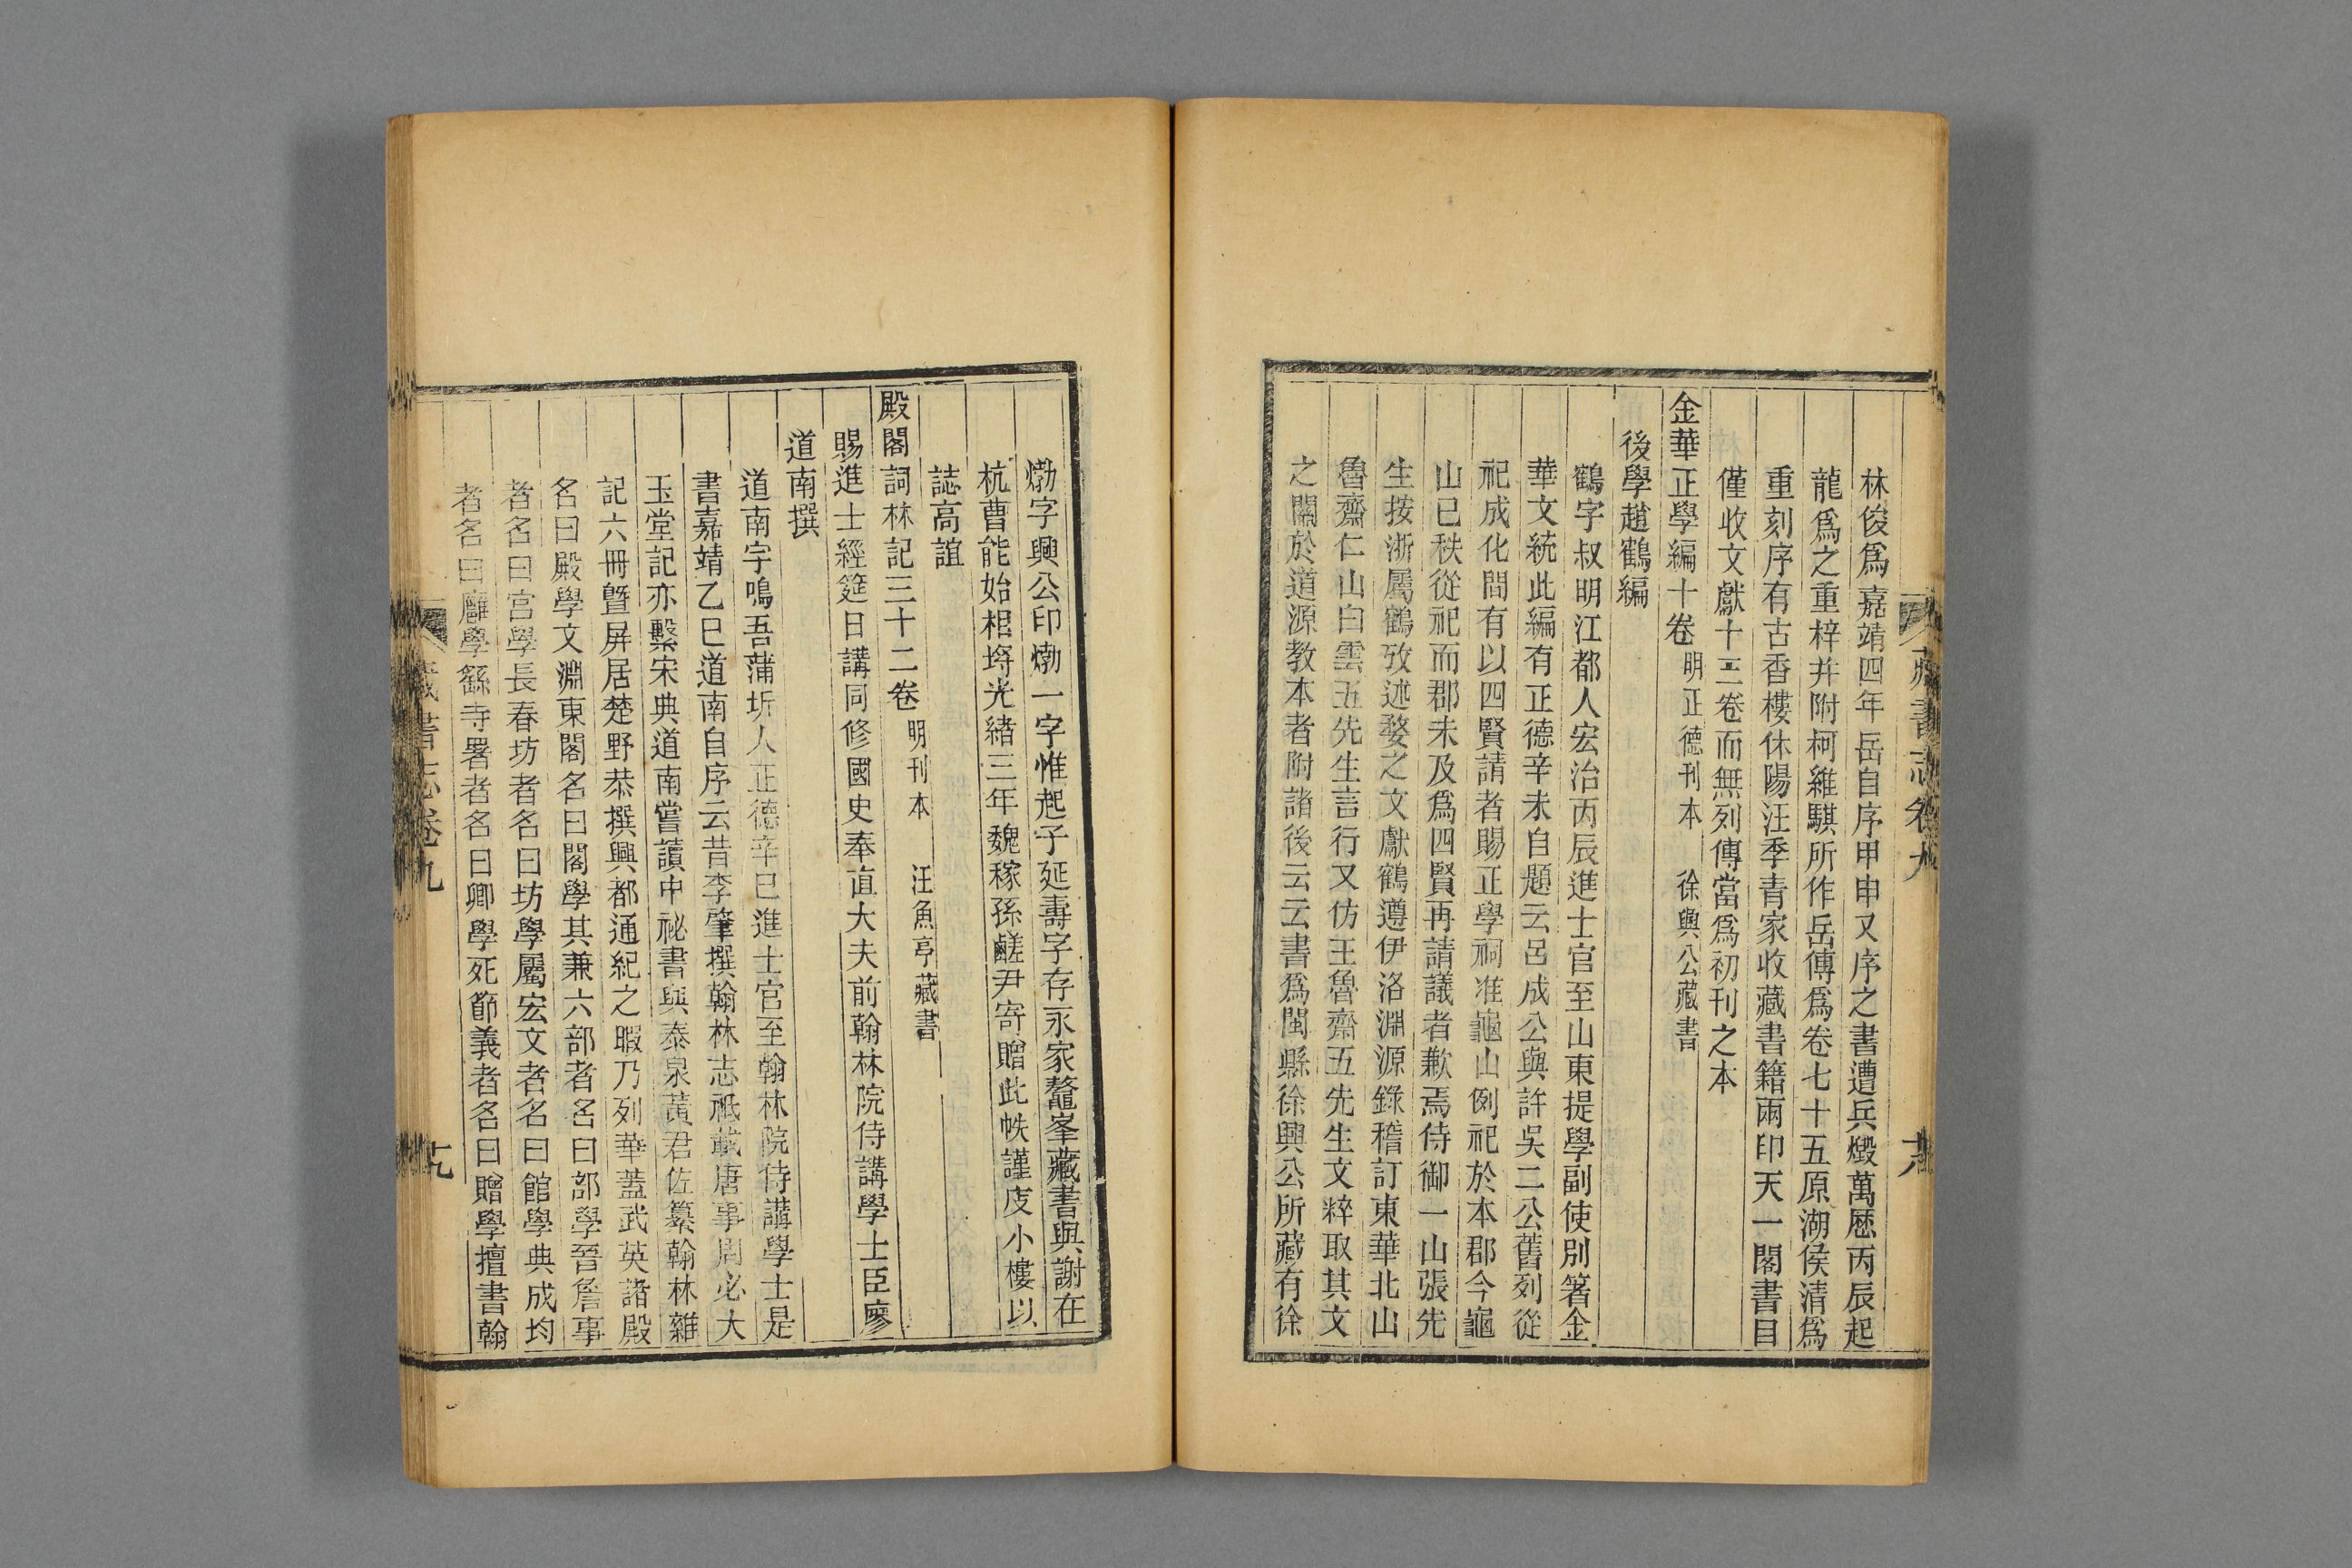 林俊爲嘉靖四年岳自序甲申又序之書遭兵燬萬厯丙辰起
龍爲之重梓并附柯維騏所作岳傳爲卷七十五原湖侯清爲
重刻序有古香樓休陽汪季青家收藏書籍兩印天一閣書目
僅收文獻十三卷而無列傳當爲初刊之本
金華正學編十卷 明正德刊本 徐興公藏書
後學趙鶴編
鶴字叔明江都人宏治丙辰進士官至山東提學副使別箸金
華文統此編有正德辛未自題云呂成公與許吳二公舊列從
祀成化間有以四賢請者賜正學祠准龜山例祀於本郡今龜
山已秩從祀而郡未及爲四賢再請議者歉焉侍御一山張先
生按浙屬鶴攷述婺之文獻鶴遵伊洛淵源錄稽訂東華北山
魯齋仁山白雲五先生言行又仿王魯齋五先生文粹取其文
之關於道源教本者附諸後云云書爲閩縣徐興公所藏有徐
𤊹字興公印𤊹一字惟起子延壽字存永家鼇峯藏書與謝在
杭曹能始相埓光緒三年魏稼孫鹺尹寄贈此帙謹庋小樓以
誌高誼
殿閣詞林記二十二卷 明刊本 汪魚亭藏書
賜進士經筵日講同修國史奉直大夫前翰林院侍講學士臣廖
道南撰
道南字鳴吾蒲圻人正德辛巳進士官至翰林院侍講學士是
書嘉靖乙巳道南自序云昔李肇撰翰林志祗載唐事周必大
玉堂記亦繫宋典道南嘗讀中祕書與泰泉黃君佐纂翰林雜
記六冊曁屏居楚野恭撰興都通紀之暇乃列華蓋武英諸殿
名曰殿學文淵東閣名曰閣學其兼六部者名曰部學晉詹事
者名曰宮學長春坊者名曰坊學屬宏文者名曰館學典成均
者名曰廱學繇寺署者名曰卿學死節義者名曰贈學擅書翰
藏書志卷九
十九